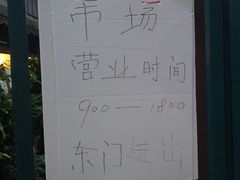 市场
营业时间
900—1800
东门进出